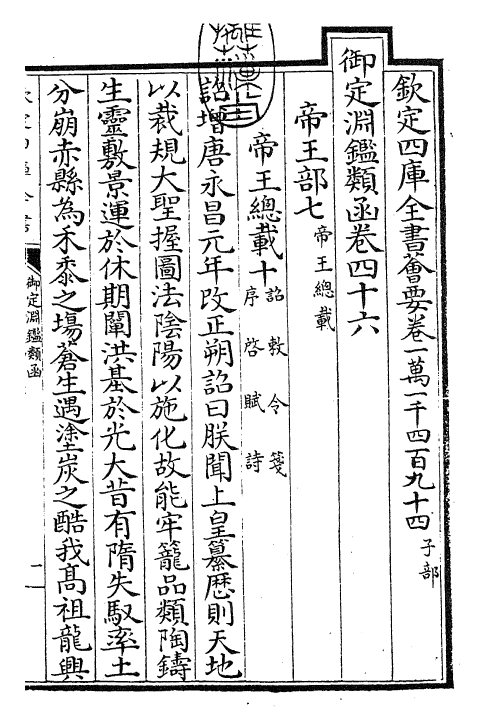 欽定四庫全書薈要卷一萬一千四百九十四 子部
御定淵鑑類函卷四十六
帝王部七 帝王總載
帝王總載十 詔 敕 令 箋 序 啓 賦 詩
詔增唐永昌元年改正朔詔曰朕聞上皇纂歴則天地
以裁規大聖握圖法陰陽以施化故能牢籠品類陶鑄
生靈敷景運於休期闡洪基於光大昔有隋失馭率土
分崩赤縣為禾黍之場蒼生遇塗炭之酷我髙祖龍興
御定淵鑑類函